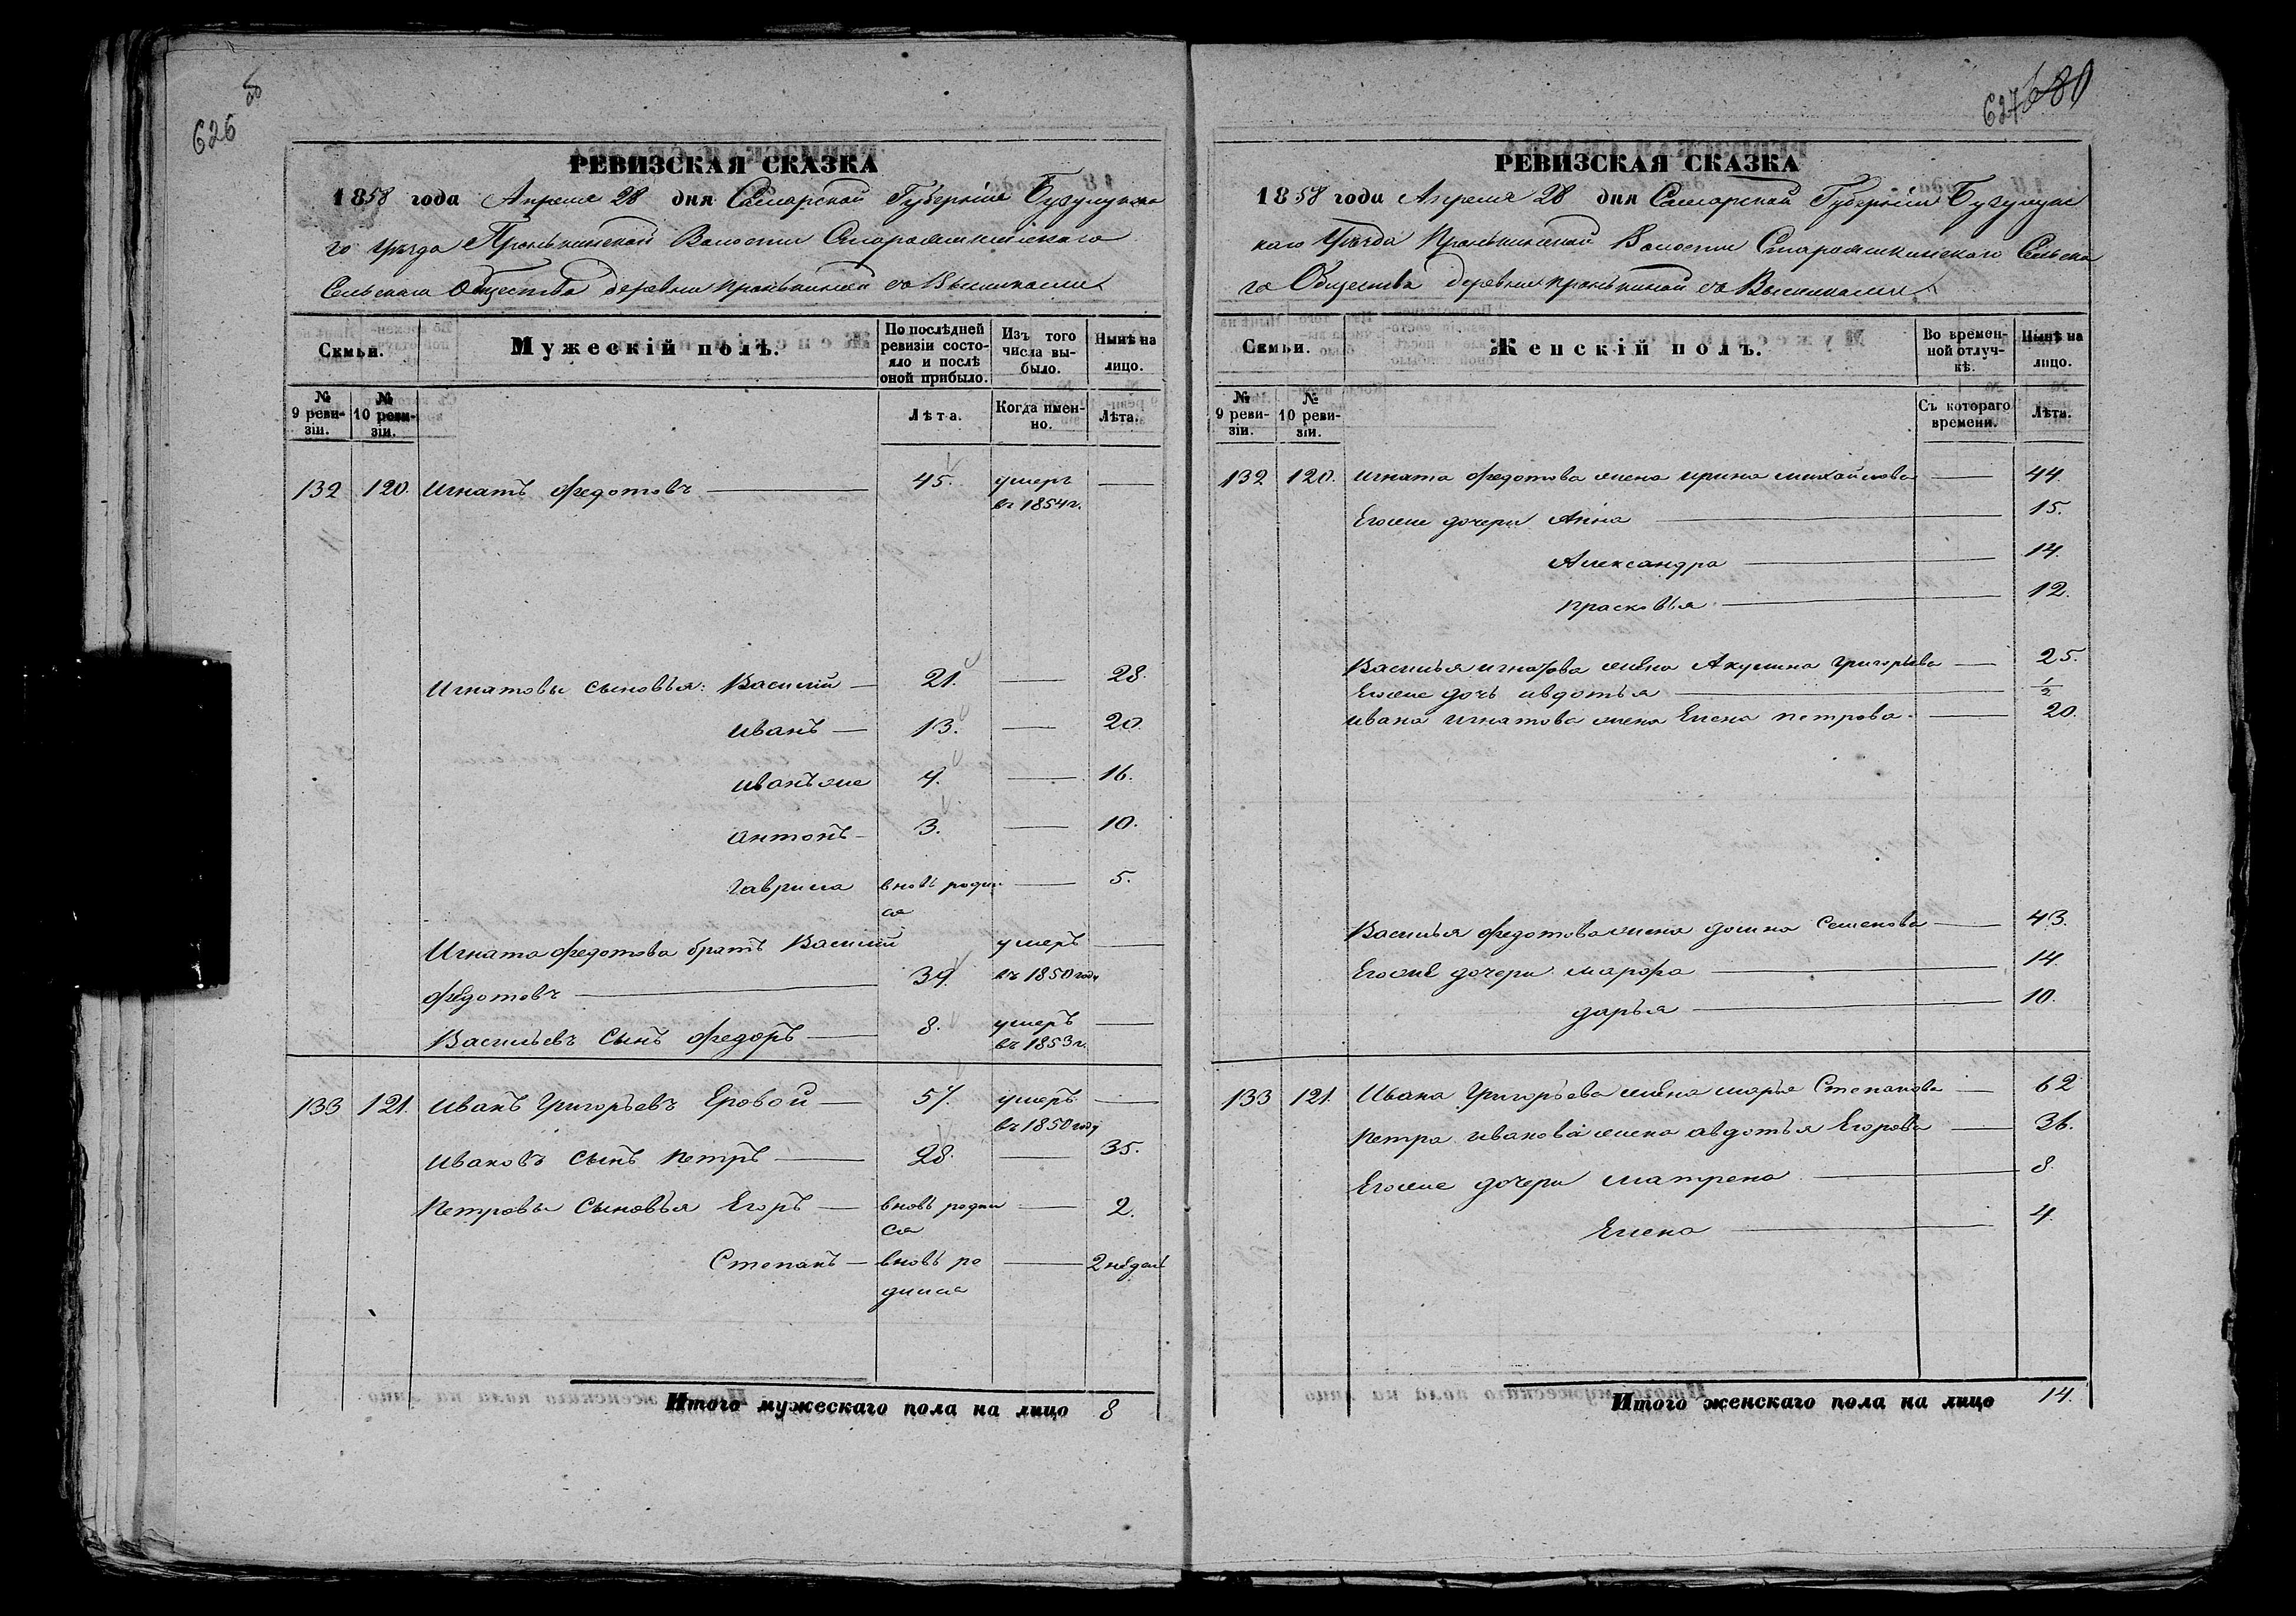 626
РЕВИЗСКАЯ СКАЗКА
1858 года Апреля 28 дня Самарской Губерніи Бузулукска
го уѣзда Пронькинской Волости
Сельскаго Общества деревни Пронькиной съ Выселками
Семьи.
Мужескій полъ.
По послѣдней ревизіи состояло и послѣ оной прибыло.
Изъ того числа выбыло.
Нынѣ на лицо.
№ 9 ревизіи.
№ 10 ревизіи.
Лѣта.
Когда именно.
Лѣта.
132 120. Игнатъ Федотовъ 45. умеръ
въ 1854 г.
Игнатовы сыновья: Василій 21. 28.
Иванъ 13. 20.
Иванъ же 16.
Антонъ 3. 10.
Гаврила вновь родил 5.
ся
Игната Федотова братъ Василій умеръ
Федотовъ въ 1850 году
Васильевъ сынъ Федоръ 8. умеръ
въ 1853 г.
133 121. Иванъ Григорьевъ Еровой 57. умеръ
въ 1850 году
Ивановъ сынъ Петръ 28. 35.
Петровы сыновья Егоръ вновь родил 2.
ся
Степанъ вновь ро 2 недѣл
дился
Итого мужескаго пола на лицо 8
627
РЕВИЗСКАЯ СКАЗКА
1858 года Апреля 28 дня Самарской Губерніи Бузулукс
каго Уѣзда Пронькинской Волости Сельска
го Общества деревни Пронькиной съ Выселками
Семьи.
Женскій полъ.
Во временной отлучкѣ.
Нынѣ на лицо.
№ 9 ревизіи.
№ 10 ревизіи.
Съ котораго времени.
Лѣта.
132 120. Игната Федотова жена Ирина Михайлова 44.
Его же дочери Анна 15.
Александра 14.
Прасковья 12.
Василья Игнатова жена Акулина Григорьева 25.
Его же дочь Авдотья 1/2
Ивана Игнатова жена Елена Петрова 20.
Василья Федотова жена Домна Семенова 43.
Его же дочери Марфа 14.
Дарья 10.
133 121. Ивана Григорьева жена Марья Степанова 62
Петра Иванова жена Авдотья Егорова 36.
Его же дочери Матрена 8.
Елена 4.
Итого женскаго пола на лицо 14.